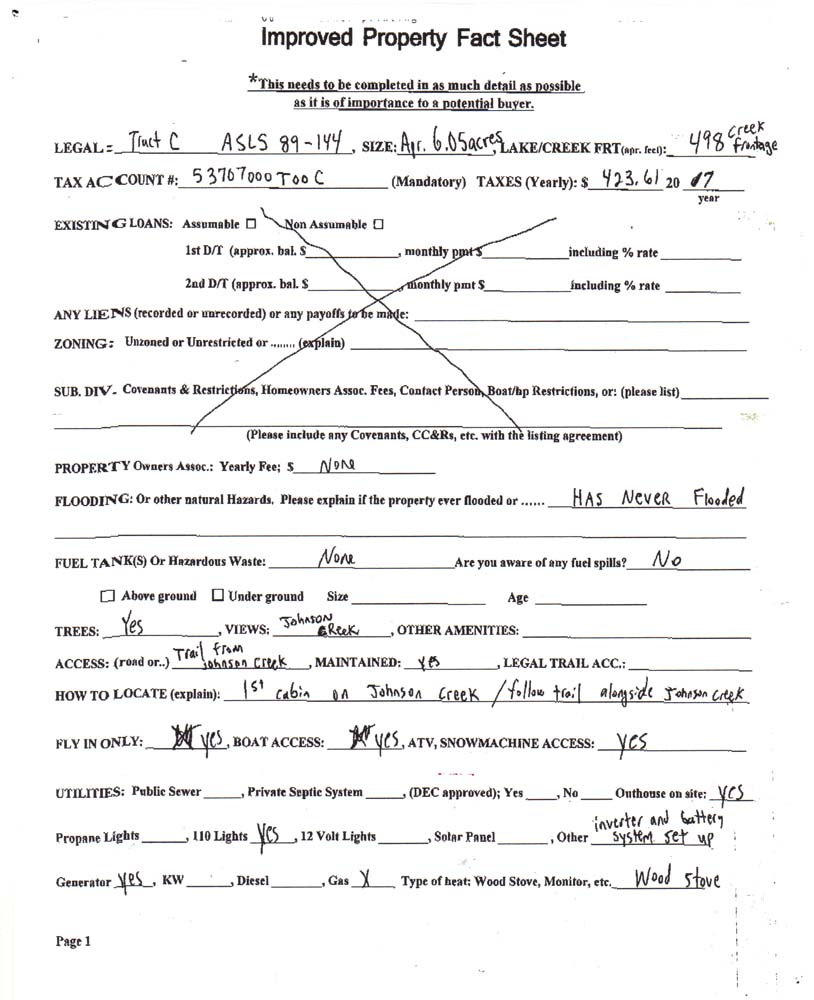 Improved Property Fact Sheet
*This needs to be completed in as much detail as possible
as it is of importance to a potential buyer.
LEGAL= Tract C ASLS 89-144, SIZE: Apr. 6.05acres, LAKE/CREEK FRT(apr. feet): 498 creek frontage
TAX ACCOUNT #: 53707000T00C (Mandatory) TAXES (Yearly): $ 423.61 2017
year
EXISTING LOANS: Assumable ☐ Non Assumable ☐
1st D/T (approx. bal. $__________, monthly pmt $__________including % rate __________
2nd D/T (approx. bal. $__________, monthly pmt $__________including % rate __________
ANY LIENS (recorded or unrecorded) or any payoffs to be made: __________
ZONING: Unzoned or Unrestricted or ........ (explain) __________
SUB. DIV. Covenants & Restrictions, Homeowners Assoc. Fees, Contact Person, Boat/hp Restrictions, or: (please list)__________
(Please include any Covenants, CC&Rs, etc. with the listing agreement)
PROPERTY Owners Assoc.: Yearly Fee; $ None
FLOODING: Or other natural Hazards. Please explain if the property ever flooded or ...... HAS Never Flooded
FUEL TANK(S) Or Hazardous Waste: None Are you aware of any fuel spills? No
☐ Above ground ☐ Under ground Size __________ Age __________
TREES: Yes, VIEWS: Johnson CReek, OTHER AMENITIES: __________
ACCESS: (road or..) Trail from Johnson Creek, MAINTAINED: yes, LEGAL TRAIL ACC.: __________
HOW TO LOCATE (explain): 1st cabin on Johnson Creek / follow trail alongside Johnson creek
FLY IN ONLY: yes, BOAT ACCESS: yes, ATV, SNOWMACHINE ACCESS: yes
UTILITIES: Public Sewer _____, Private Septic System _____, (DEC approved); Yes _____, No _____ Outhouse on site: yes
Propane Lights _____, 110 Lights yes, 12 Volt Lights _____, Solar Panel _____, Other inverter and battery system set up
Generator yes, KW _____, Diesel _____, Gas X Type of heat: Wood Stove, Monitor, etc. Wood stove
Page 1